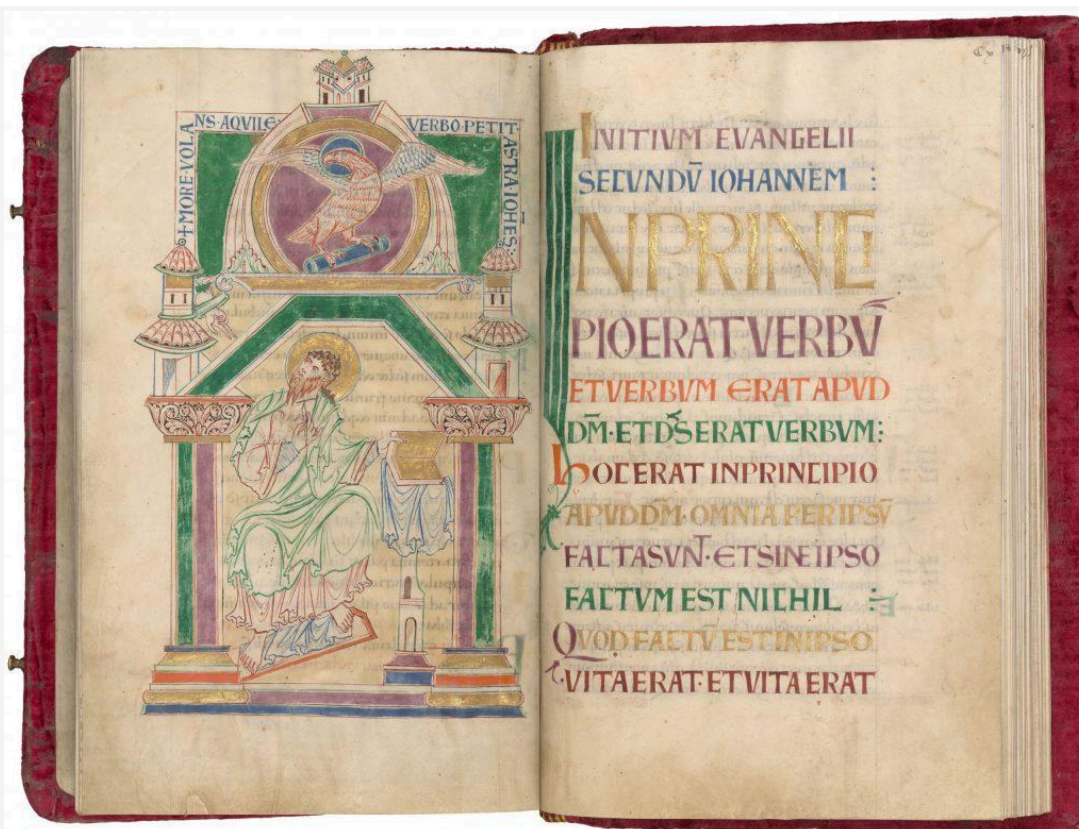 +MORE·VOLA
NS·AQVILE
VERBO·PETIT·
ASTRA IOH̄ES:
INITIVM EVANGELII
SECVNDV̄ IOHANNEM :
INPRINCI
PIO ERAT VERBV̄
ET VERBVM ERAT APVD
DM̄·ET DS̄ ERAT VERBVM:
hOC ERAT INPRINCIPIO
APVD DM̄·OMNIA PER IPSV̄
FACTA SVNT·ET SINE IPSO
FACTVM EST NICHIL :
QVOD FACTV̄ EST IN IPSO
VITA ERAT·ET VITA ERAT